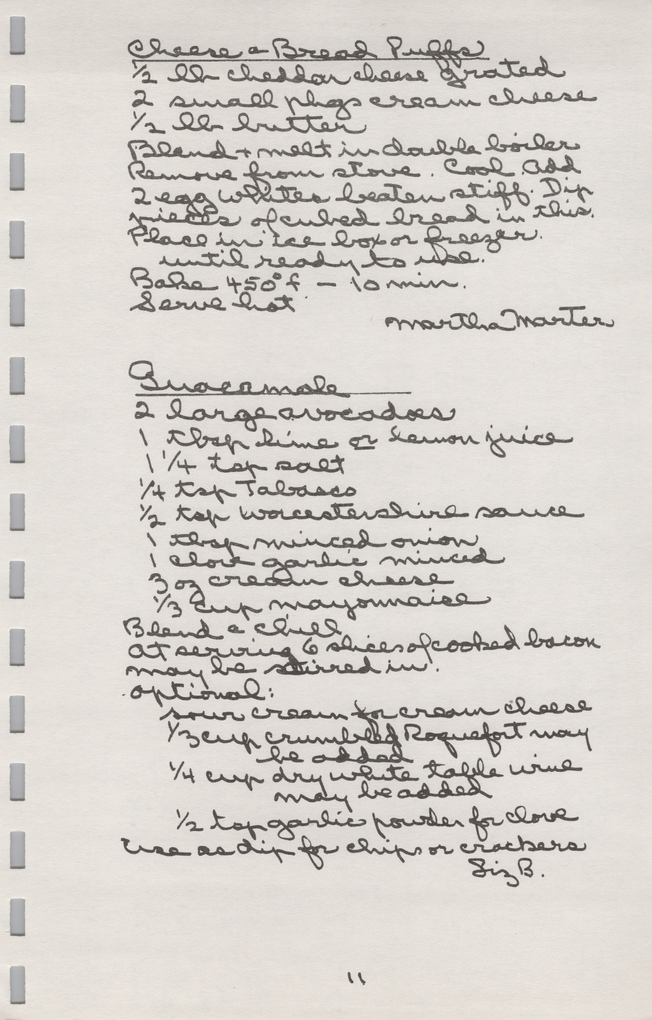 Cheese & Bread Puffs
1/2 lb cheddar cheese grated
2 small phgs cream cheese
1/2 lb butter
Blend + melt in double boiler
Remove from stove. Cool. Add
2 egg whites beaten stiff. Dip
pieces of cubed bread in this.
Place in ice box or freezer.
until ready to use.
Bake 450° f — 10 min.
Serve hot
Martha Marter
Guacamole
2 large avocadoes
1 tbsp lime or lemon juice
1 1/4 tsp salt
1/4 tsp Tabasco
1/2 tsp Worcestershire sauce
1 tbsp minced onion
1 clove garlic minced
3 oz cream cheese
1/3 cup mayonnaise
Blend & chill
At serving 6 slices of cooked bacon
may be stirred in.
optional:
sour cream for cream cheese
1/3 cup crumbled Roquefort may
be added
1/4 cup dry white table wine
may be added
1/2 tsp garlic powder for clove
Use as dip for chips or crackers
Liz B.
11